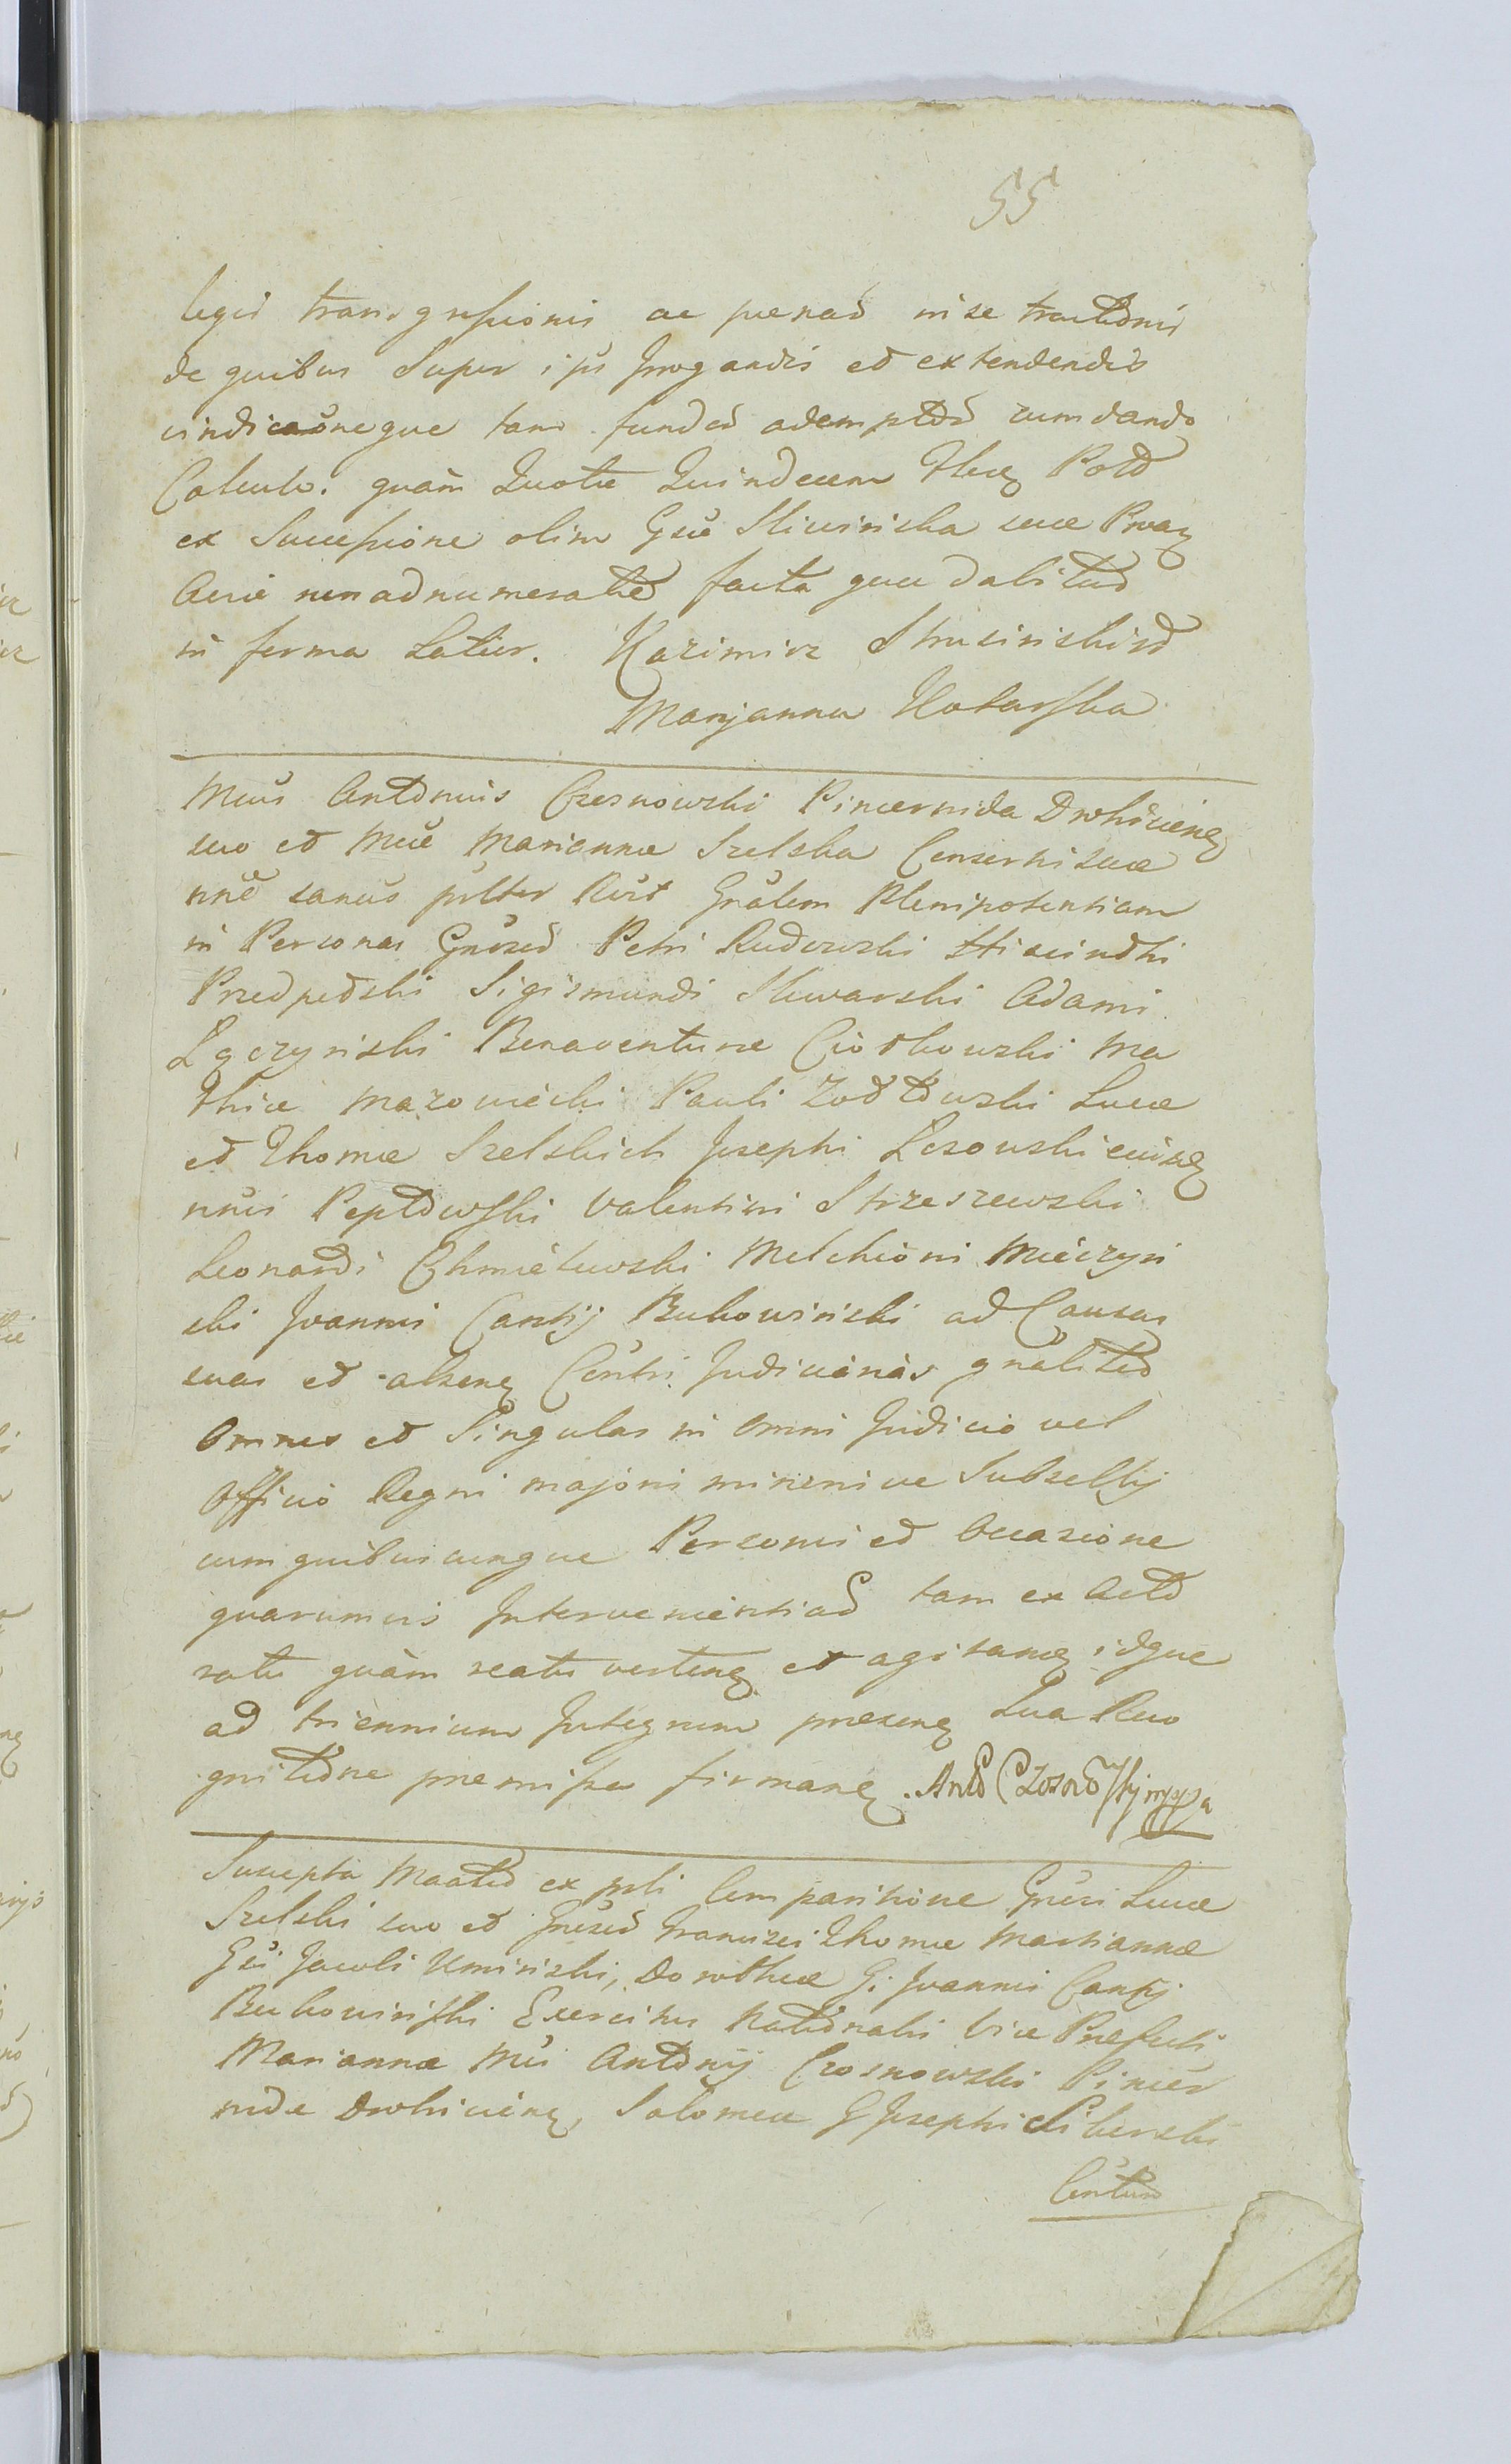 55
legis transgressionis ac paenas in se tractionis
de quibus Super ipsis Irrogandis et extendendis
vindicaoneque tam fundor ademptor rum dando
Calculo. quam Quotae Quindecem Flenq Polł
ex Successione olim Gsae Sliwinska suae Proaq
Aviae non adnumeratae facta quae dabitur
in forma Latior. Kazimirz
Maryanna Kotarska
Mcus Antonius Czosnowski Pincernida Drohicienq
suo et Mcae Marianna Szelska Consortis suae
nne sanus pulter Rust Gnalem Plenipotentiam
in Personas Gnosor Petri Rudowski Hiacinthi
Przedpełski Sigismundi Slewarski Adami
Łączynski Bonaventurae Ciołkowski Ma
thiae Mazowiecki Pauli Zołtowski Lucae
et Thomae Szelskich Josephi Lesowski
Valentini Strzeszewski
Leonardi Chmielewski Melchioris Mieczyn
ski Joannis Cantij Bukowinski ad Causas
suas et alsenq Contri Judiciarias gnaliter
Omnes et Singulas in Omni Judicio vel
Officio Regni majoris minorisve Subsellij
cum quibuscunque Personis et Occasione
quarumvis Intervenientiar tam ex Acto
ratu quam reatu vertenq et agitanq idque
ad triennium Integrum praesenq Sua Reco
gnitione praemissa firmanq. Anto Czosnowskj mppa
Suscepta Maatio ex psli Comparitione Gnosi Lucae
Szelski suo et Gnosor Francisci Thomae Mastianna
Gsi Jacobi Uminski, Dorotheae G. Joannis Cantij
Bukowinski Exercitus Nationalis Vice Praefecti
Mariannae Mci Antonij Czosnowski Pincer
nidae Drohicienq, Salomeae G Josephi
Contum